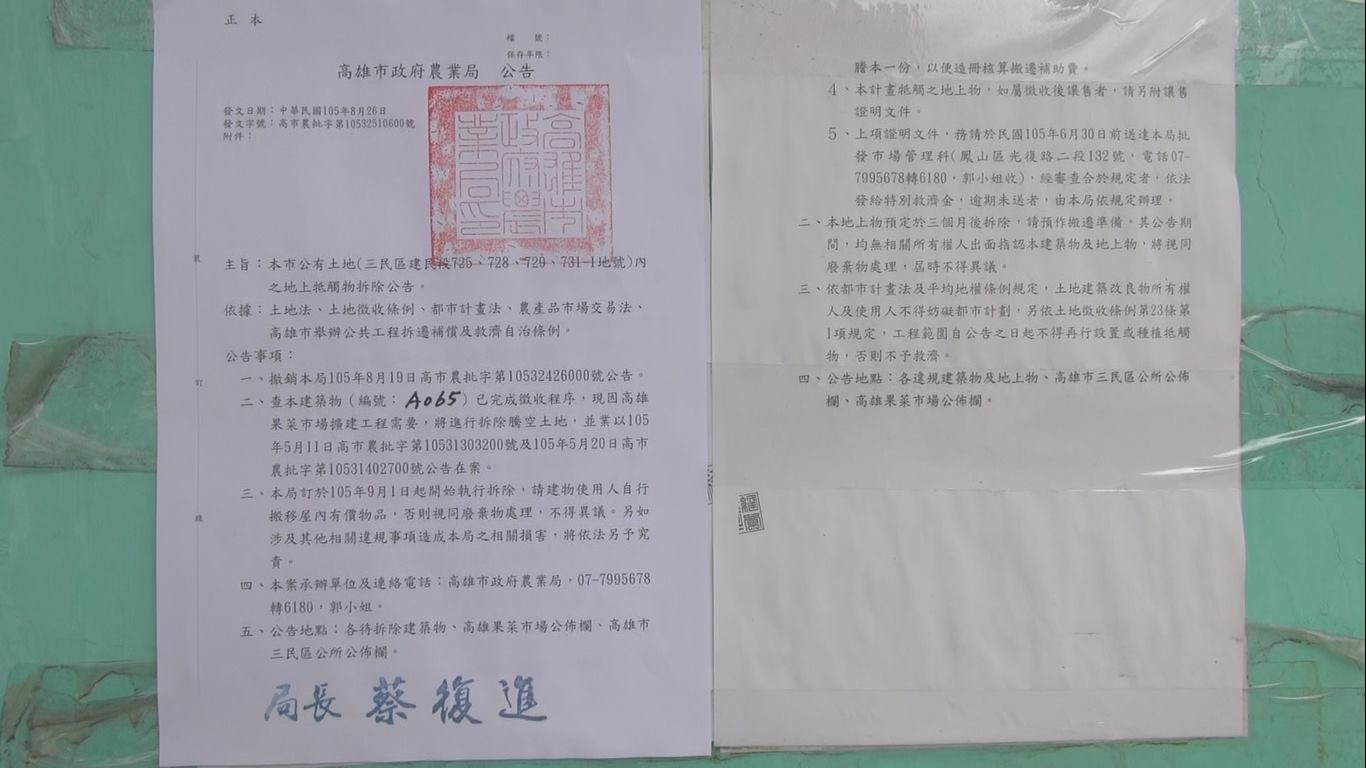 正 本
檔 號：
保存年限：
高雄市政府農業局 公告
發文日期：中華民國105年8月26日
發文字號：高市農批字第10532510600號
附件：
高雄市政府農業局印
主旨：本市公有土地(三民區建民段725、728、729、731-1地號)內
之地上牴觸物拆除公告。
依據：土地法、土地徵收條例、都市計畫法、農產品市場交易法、
高雄市舉辦公共工程拆遷補償及救濟自治條例。
公告事項：
一、撤銷本局105年8月19日高市農批字第10532426000號公告。
二、查本建築物（編號：A065）已完成徵收程序，現因高雄
果菜市場擴建工程需要，將進行拆除騰空土地，並業以105
年5月11日高市農批字第10531303200號及105年5月20日高市
農批字第10531402700號公告在案。
三、本局訂於105年9月1日起開始執行拆除，請建物使用人自行
搬移屋內有價物品，否則視同廢棄物處理，不得異議。另如
涉及其他相關違規事項造成本局之相關損害，將依法另予究
責。
四、本案承辦單位及連絡電話：高雄市政府農業局，07-7995678
轉6180，郭小姐。
五、公告地點：各待拆除建築物、高雄果菜市場公佈欄、高雄市
三民區公所公佈欄。
局長 蔡復進
裝
訂
線
謄本一份，以便造冊核算搬遷補助費。
4、本計畫牴觸之地上物，如屬徵收後讓售者，請另附讓售
證明文件。
5、上項證明文件，務請於民國105年6月30日前送達本局批
發市場管理科(鳳山區光復路二段132號，電話07-
7995678轉6180，郭小姐收)，經審查合於規定者，依法
發給特別救濟金，逾期未送者，由本局依規定辦理。
二、本地上物預定於三個月後拆除，請預作搬遷準備。其公告期
間，均無相關所有權人出面指認本建築物及地上物，將視同
廢棄物處理，屆時不得異議。
三、依都市計畫法及平均地權條例規定，土地建築改良物所有權
人及使用人不得妨礙都市計劃，另依土地徵收條例第23條第
1項規定，工程範圍自公告之日起不得再行設置或種植牴觸
物，否則不予救濟。
四、公告地點：各違規建築物及地上物、高雄市三民區公所公佈
欄、高雄果菜市場公佈欄。